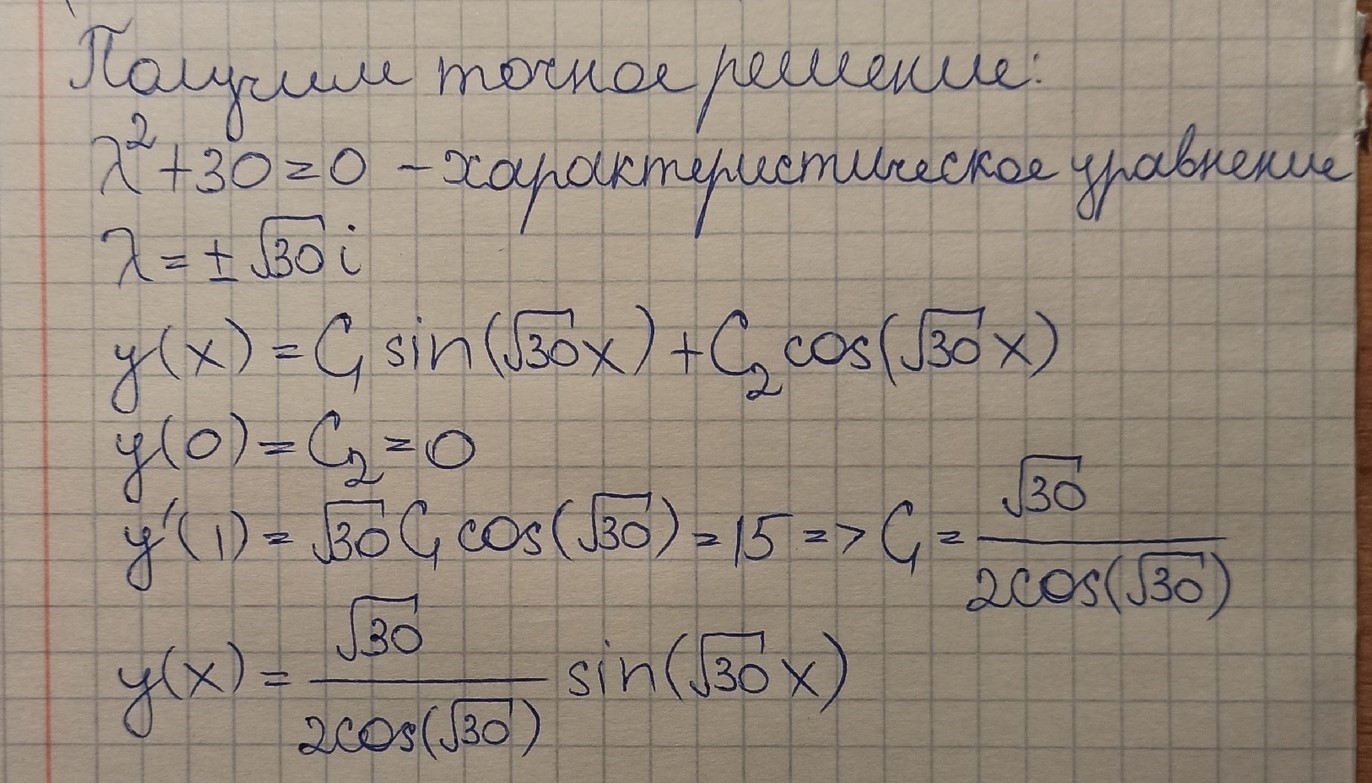 Получим точное решение:
λ²+30=0 – характеристическое уравнение
λ = ± √30 i
y(x) = C₁ sin(√30x) + C₂ cos(√30x)
y(0) = C₂ = 0
y'(1) = √30 C₁ cos(√30) = 15 => C₁ = √30 / 2cos(√30)
y(x) = √30 / 2cos(√30) sin(√30x)